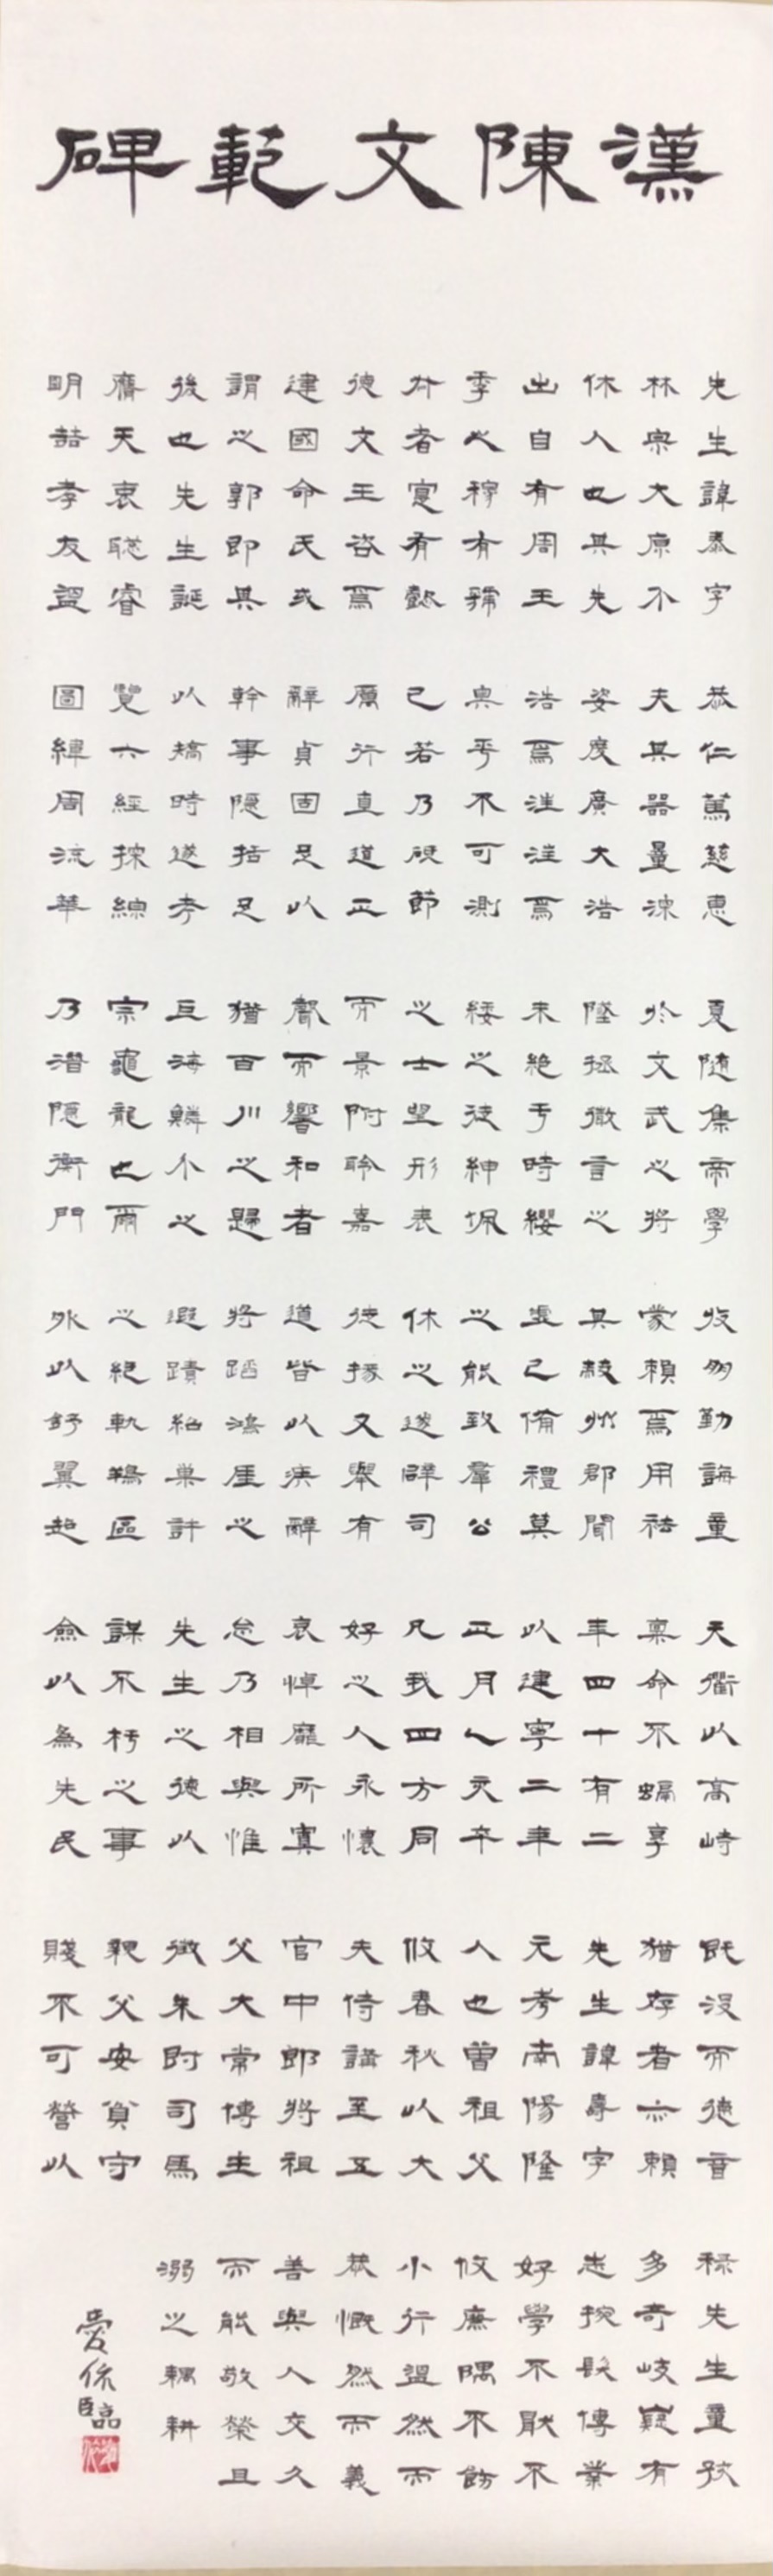 漢陳文範碑
先生諱泰字
林宗大原介
休人也其先
出自有周王
季之穆有虢
叔者寔有懿
德文王咨焉
建國命氏或
謂之郭即其
後也先生誕
膺天衷聡睿
明喆孝友溫
恭仁篤慈惠
夫其器量深
姿度廣大浩
浩焉汪汪焉
奥乎不可測
已若乃砥節
厲行直道正
辭貞固足以
幹事隱括足
以矯時遂考
覽六經探綜
圖緯周流華
夏隨集帝學
於文武之將
墜拯微言之
未絕于時纓
緌之徒紳佩
之士望形表
而景附聆嘉
聲而響和者
猶百川之歸
巨海鱗介之
宗龜龍也爾
乃潛隱衡門
收朋勤誨童
蒙賴焉用祛
其蔽州郡聞
虛己備禮莫
之能致羣公
休之遂辟司
徒掾又舉有
道皆以疾辭
將蹈鴻厓之
遐蹟紹巢許
之絕軌區
外以舒翼超
天衢以高峙
稟命不融享
年四十有二
以建寧二年
正月乙亥卒
凡我四方同
好之人永懷
哀悼靡所寘
念乃相與惟
先生之德以
謀不朽之事
僉以為先民
既没而德音
猶存者亦賴
先生諱壽字
元考南陽隆
人也曾祖父
攸春秋以大
夫侍講至五
官中郎將祖
父大常博士
徵朱爵司馬
親父安貧守
賤不可營以
祿先生童孩
多奇岐嶷有
志捥髮傳業
好學不厭不
攸廉隅不飭
小行溫然而
恭慨然而義
善與人交久
而能敬榮且
溺之耦耕
愛臨